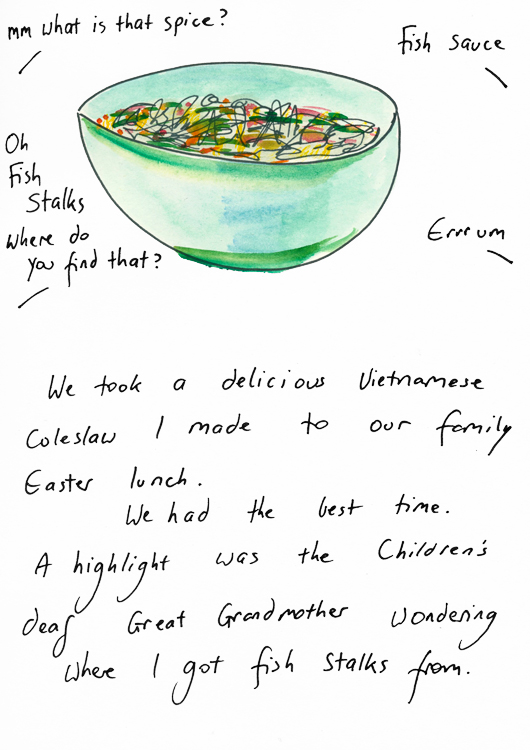 mm what is that spice?
Fish sauce
Oh
Fish
Stalks
where do
you find that?
Errr um
We took a delicious Vietnamese
Coleslaw I made to our family
Easter lunch.
We had the best time.
A highlight was the Children's
deaf Great Grandmother wondering
where I got fish stalks from.